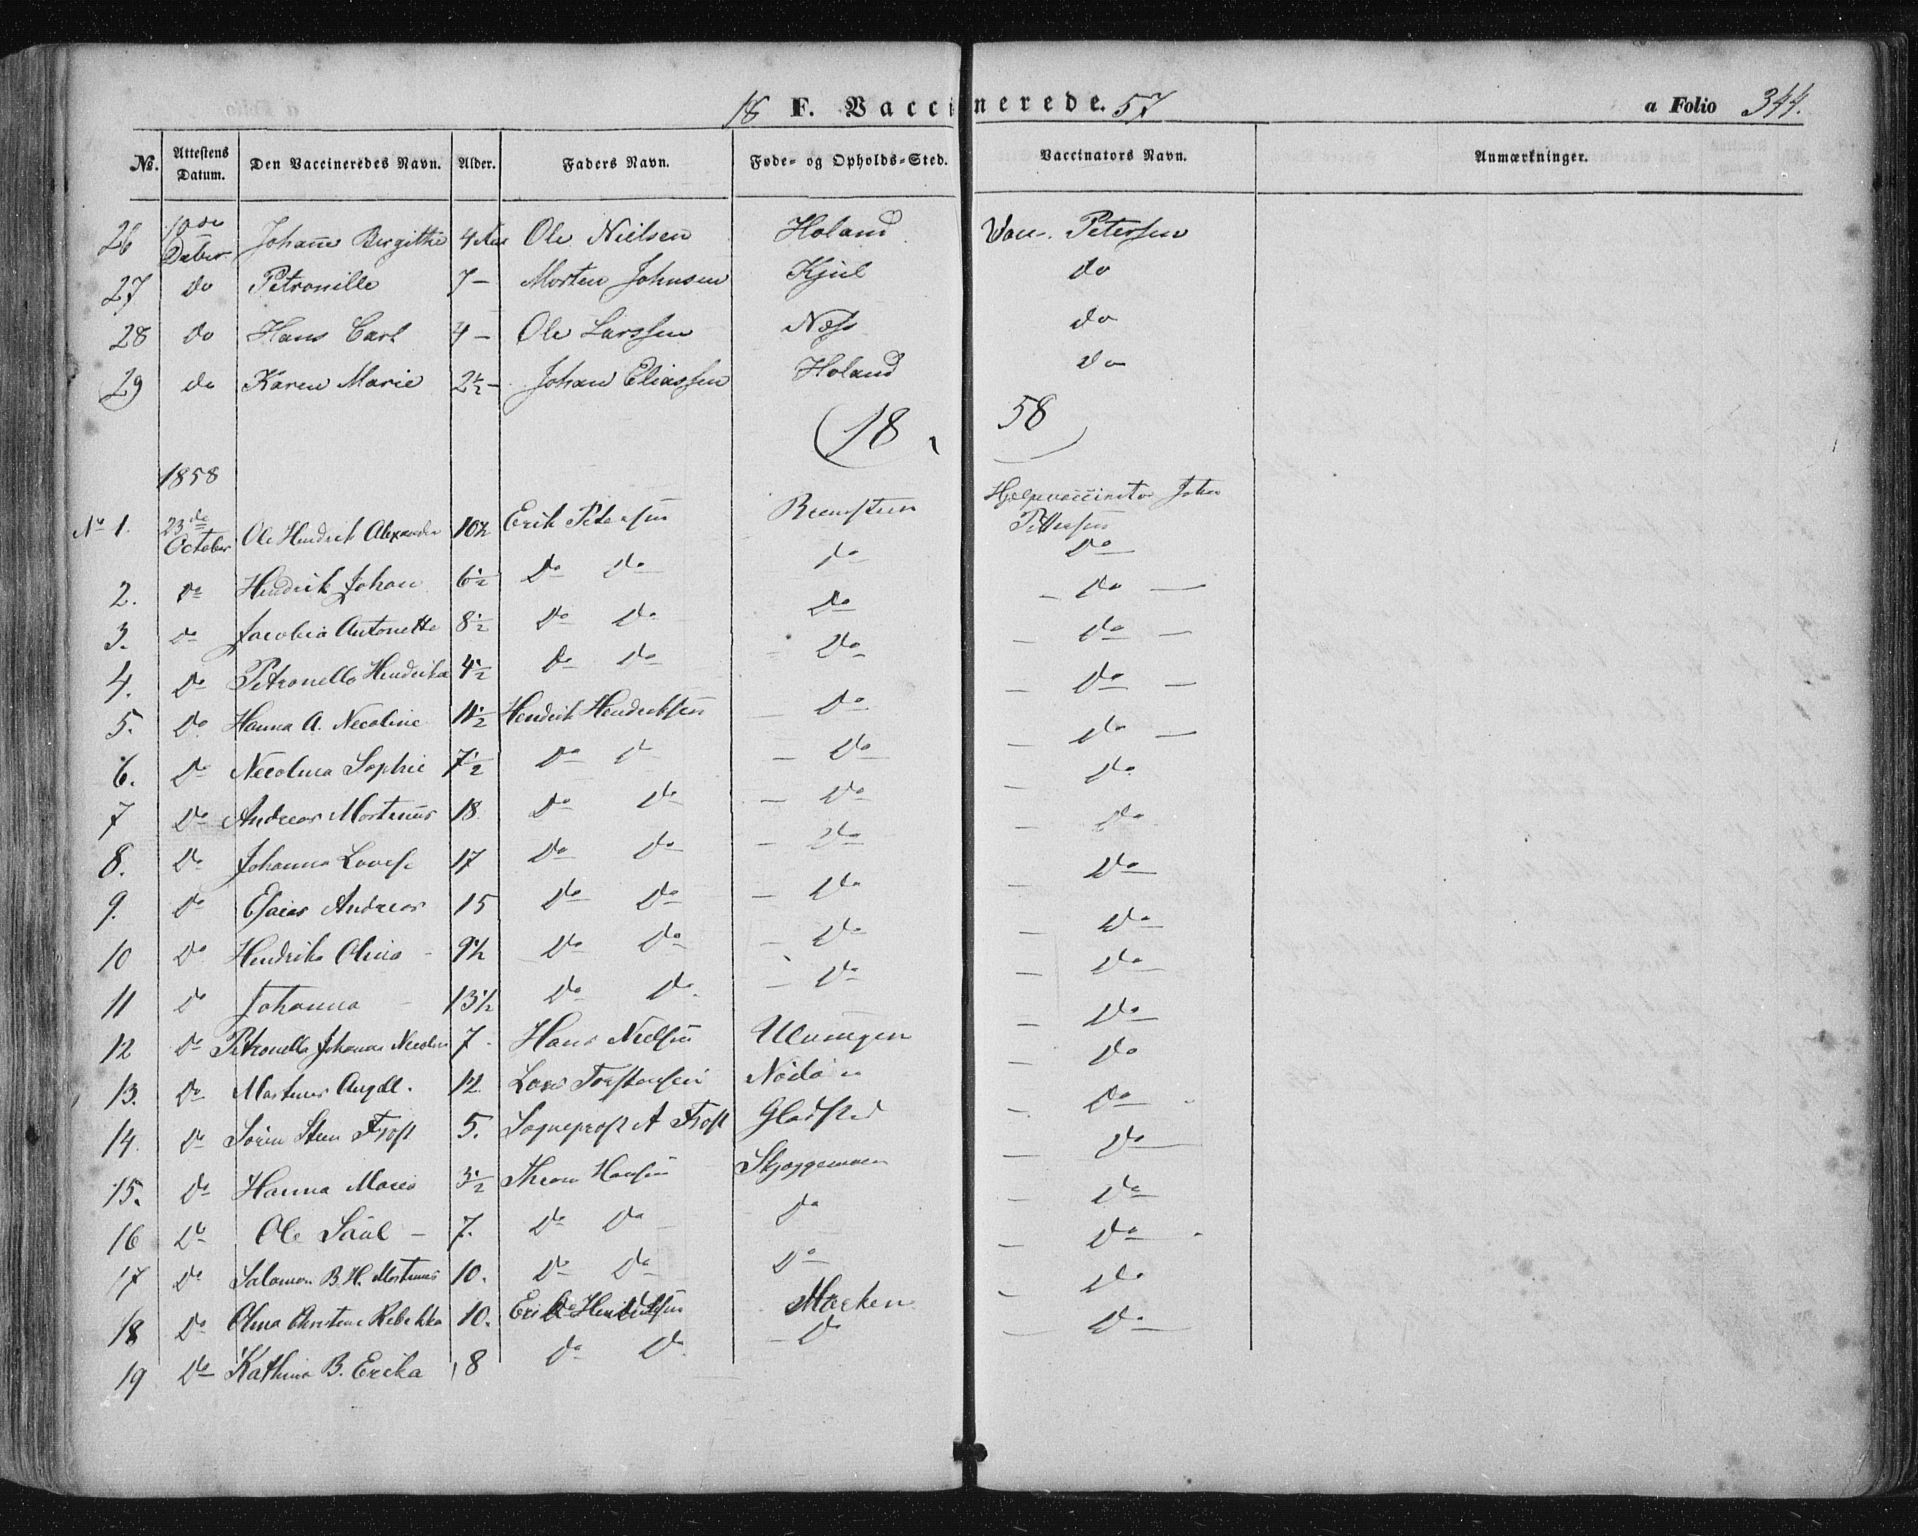 18 F. Vaccinerede. 57 a Folio 344.
No. Attestens Datum. Den Vaccineredes Navn. Alder. Faders Navn. Føde- og Opholds-Sted. Vaccinators Navn. Anmærkninger.
26 10de Dcbr Johanne Birgithe 4 Aar Ole Nielsen Holand Vacc. Petersen
27 do Petronille 7 – Morten Johnsen Kjul do
28 do Hans Carl 4 – Ole Larssen Næss do
29 do Karen Marie 2½ – Johan Eliassen Holand do
18 58
1858
No 1. 23de October Ole Hendrik Alexander 10½ Erik Petersen Hjelpevaccinator Johan Pettersen
2. Do Hendrik Johan 6½ Do Do Do Do
3. Do Jacobia Antonette 8½ Do Do Do – Do –
4. Do Petronella Hendrika 4½ Do Do Do – Do –
5. Do Hanna A. Necoline 11½ Hendrik Hendriksen – Do – Do –
6. Do Necolina Sophie 7½ Do Do – Do – Do –
7 Do Andreas Mortinus 18 Do Do – Do – Do
8. Do Johanna Lovise 17 Do Do – Do – Do
9. Do Esaias Andreas 15 Do Do – Do – Do
10 Do Hendrika Olina – 9½ Do Do – Do – Do
11 Do Johanna – 13½ Do Do – Do – Do
12 Do Petronella Johanna Necolin 7 – Hans Nielsen Ulvingen – Do
13. Do Martinus Angel. 12 Lars Torstensen – Do
14. Do Sörin Steen Frost 5. Sogneprest A Frost Gladstad – Do
15. Do Hanna Maria 3½ Hansen Skjæggemoen – Do
16 Do Ole Saul – 7. Do Do Do – Do
17 Do Salamon B. H. Mortinus 10. Do Do Do – Do
18 Do Olina Christine Rebekka 10. Erik Hendriksen Marken – Do
19 Do Kathina B. Erika 8 Do Do – Do – Do